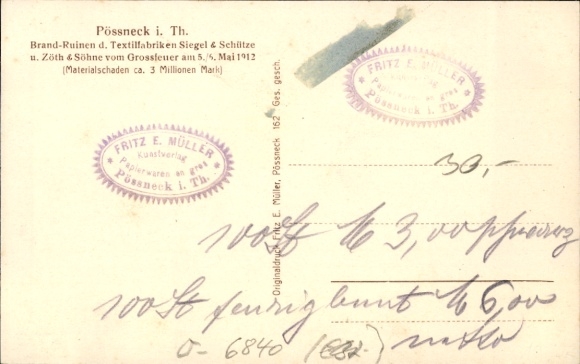 Pössneck i. Th.
Brand-Ruinen d. Textilfabriken Siegel & Schütze
u. Zöth & Söhne vom Grossfeuer am 5./6. Mai 1912
(Materialschaden ca. 3 Millionen Mark)
FRITZ E. MÜLLER
Kunstverlag
Papierwaren en gros
Pössneck i. Th.
FRITZ E. MÜLLER
Kunstverlag
Papierwaren en gros
Pössneck i. Th.
Originaldruck Fritz E. Müller, Pössneck 162 Ges. gesch.
30,-
100 St M 3,00
100 St M 6,00
netto
6840